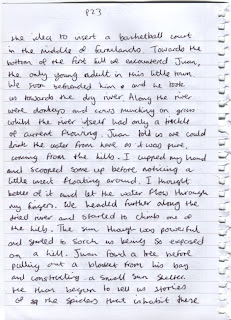 P23
the idea to insert a basketball court
in the middle of farmlands. Towards the
bottom of the first hill we encountered Juan,
the only young adult in this little town.
We soon befriended him & he took
us towards the dry river. Along the river
were donkeys and cows munching on grass
whilst the river itself had only a trickle
of current flowing. Juan told us we could
drink the water from here as it was pure,
coming from the hills. I cupped my hand
and scooped some up before noticing a
little insect floating around. I thought
better of it and let the water flow through
my fingers. We headed further along the
dried river and started to climb one of
the hills. The sun though was powerful
and started to scorch us being so exposed
on a hill. Juan found a tree before
pulling out a blanket from his bag
and constructing a small sun shelter.
He then began to tell us stories
of the spiders that inhabit these